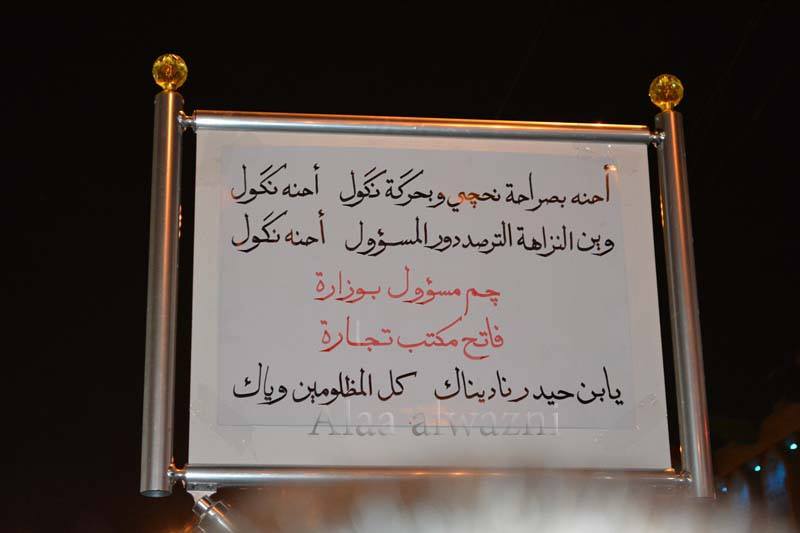 أحنه بصراحة نحچي وبحركَة نكَول أحنه نكَول
وين النزاهة الترصد دور المسؤول أحنه نكَول
چم مسؤول بوزارة
فاتح مكتب تجارة
يابن حيدر ناديناك كل المظلومين وياك
Alaa alwazni